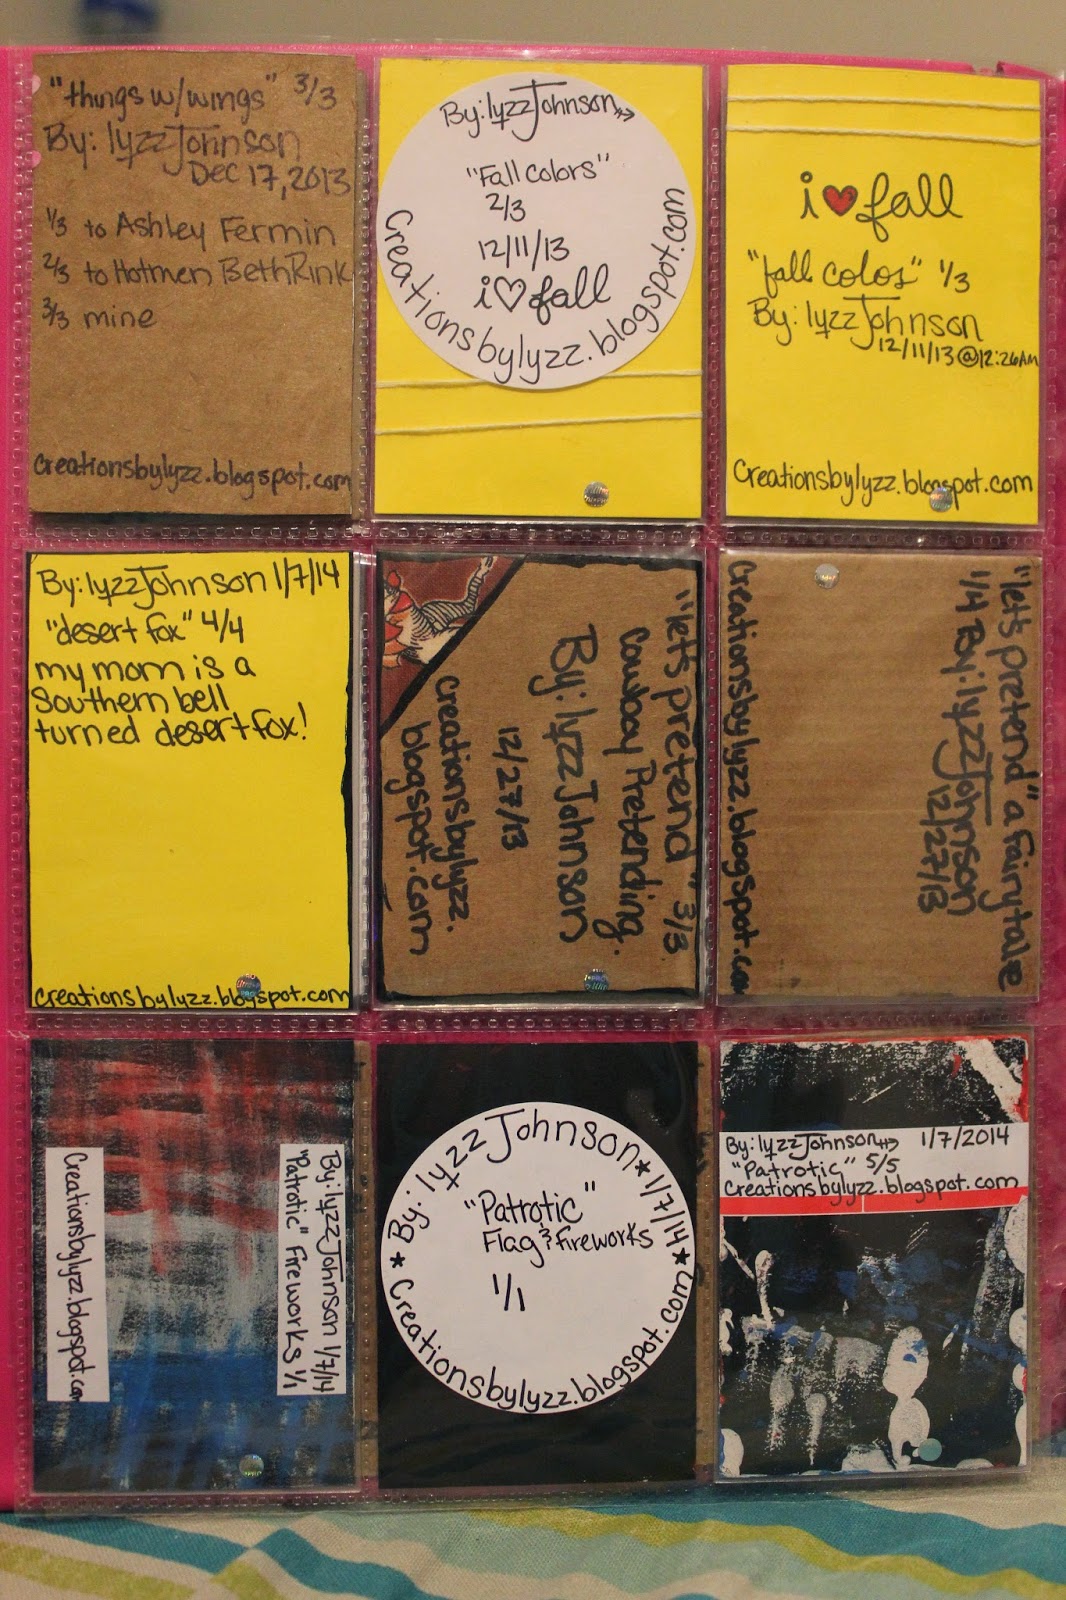 "things w/wings" 3/3
By: lyzzJohnson
Dec 17, 2013
1/3 to Ashley Fermin
2/3 to Hotmen BethRink
3/3 mine
creationsbylyzz.blogspot.com
By: lyzzJohnson
"Fall colors"
2/3
12/11/13
i♡fall
Creationsbylyzz.blogspot.com
i♥fall
"fall colos" 1/3
By: lyzzJohnson
12/11/13@12:26AM
Creationsbylyzz.blogspot.com
By: lyzzJohnson 1/7/14
"desert fox" 4/4
my mom is a
Southern bell
turned desert fox!
creationsbylyzz.blogspot.com
"let's pretend" 3/3
Cowboy Pretending.
By: lyzzJohnson
12/27/13
creationsbylyzz.
blogspot.com
"let's pretend" a fairytale
1/4 By: lyzzJohnson
12/27/13
Creationsbylyzz.blogspot.com
By: lyzzJohnson 1/7/14
"Patrotic" Fireworks 1/1
Creationsbylyzz.blogspot.com
By: lyzzJohnson★1/7/14★
"Patrotic"
Flag & fireworks
1/1
★Creationsbylyzz.blogspot.com
By: lyzzJohnson 1/7/2014
"Patrotic" 5/5
Creationsbylyzz.blogspot.com